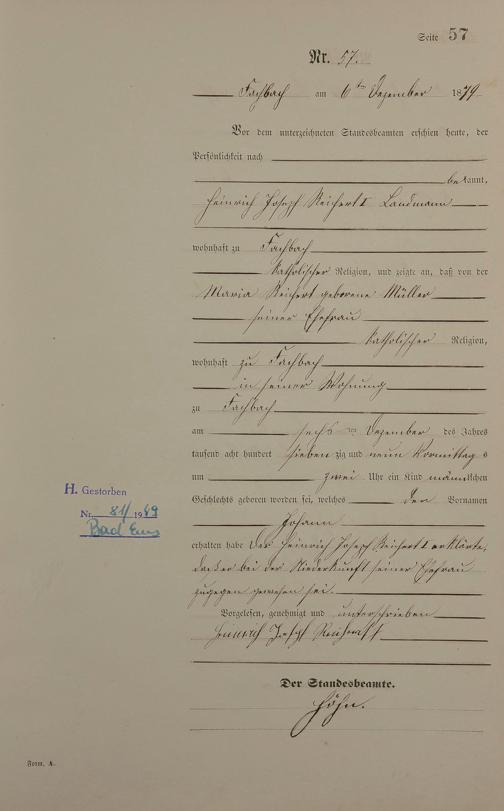 Seite 57
Nr. 57.
Fachbach am 6ten Dezember 1879
Vor dem unterzeichneten Standesbeamten erschien heute, der
Persönlichkeit nach
bekannt,
Heinrich Joseph Reichert I Landmann
wohnhaft zu Fachbach
katholischer Religion, und zeigte an, daß von der
Maria Reichert geborene Müller
seiner Ehefrau
katholischer Religion,
wohnhaft zu Fachbach
in seiner Wohnung
zu Fachbach
am sechsten Dezember des Jahres
tausend acht hundert siebenzig und neun Vormittags
um zwei Uhr ein Kind männlichen
Geschlechts geboren worden sei, welches den Vornamen
Johann
erhalten habe Der Heinrich Joseph Reichert I erklärte,
daß er bei der Niederkunft seiner Ehefrau
zugegen gewesen sei.
Vorgelesen, genehmigt und unterschrieben
Heinrich Joseph Reichert
Der Standesbeamte.
Höhn.
H. Gestorben
Nr. 81/1949
Bad Ems
Form. A.